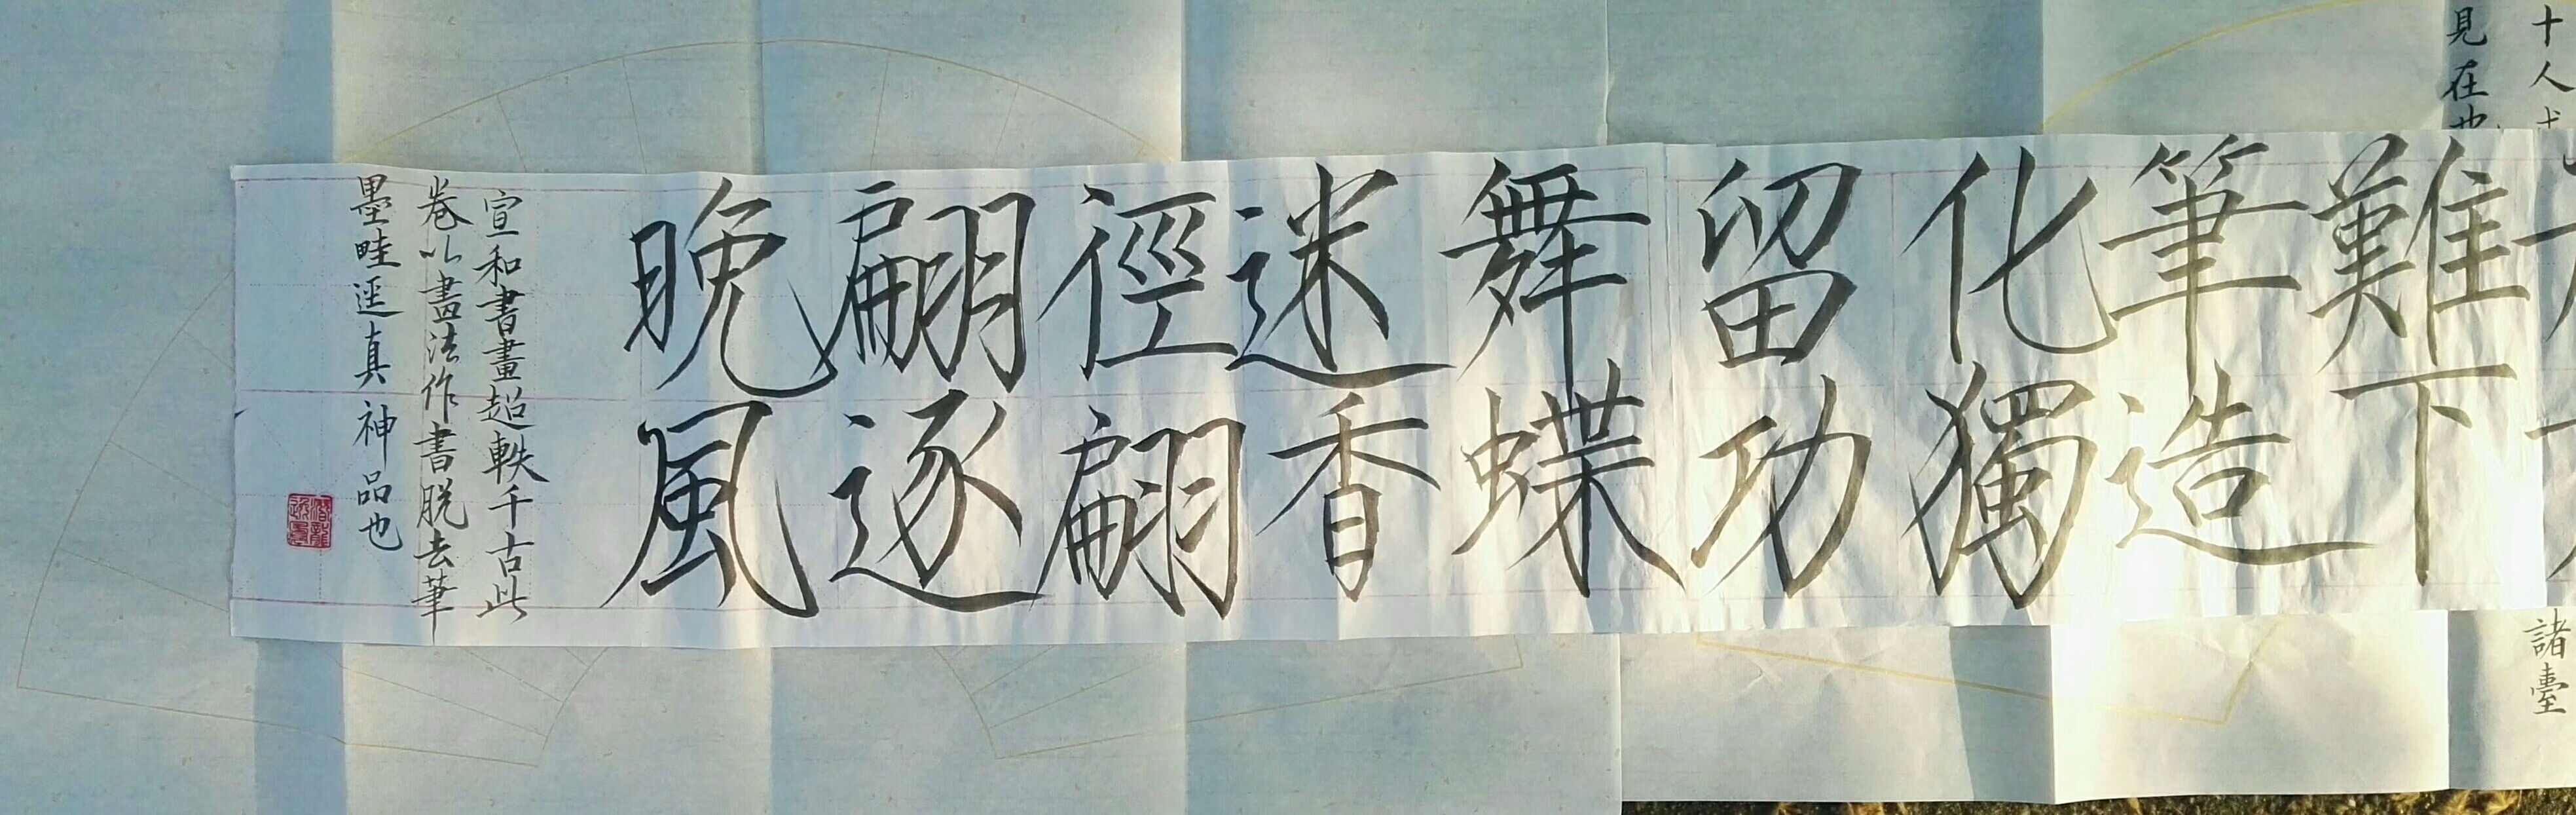 難下
筆造
化獨
留功
舞蝶
迷香
徑翩
翩逐
晚風
宣和書畫超軼千古此
卷以畫法作書脱去筆
墨畦逕真神品也
十人
見在也
諸臺